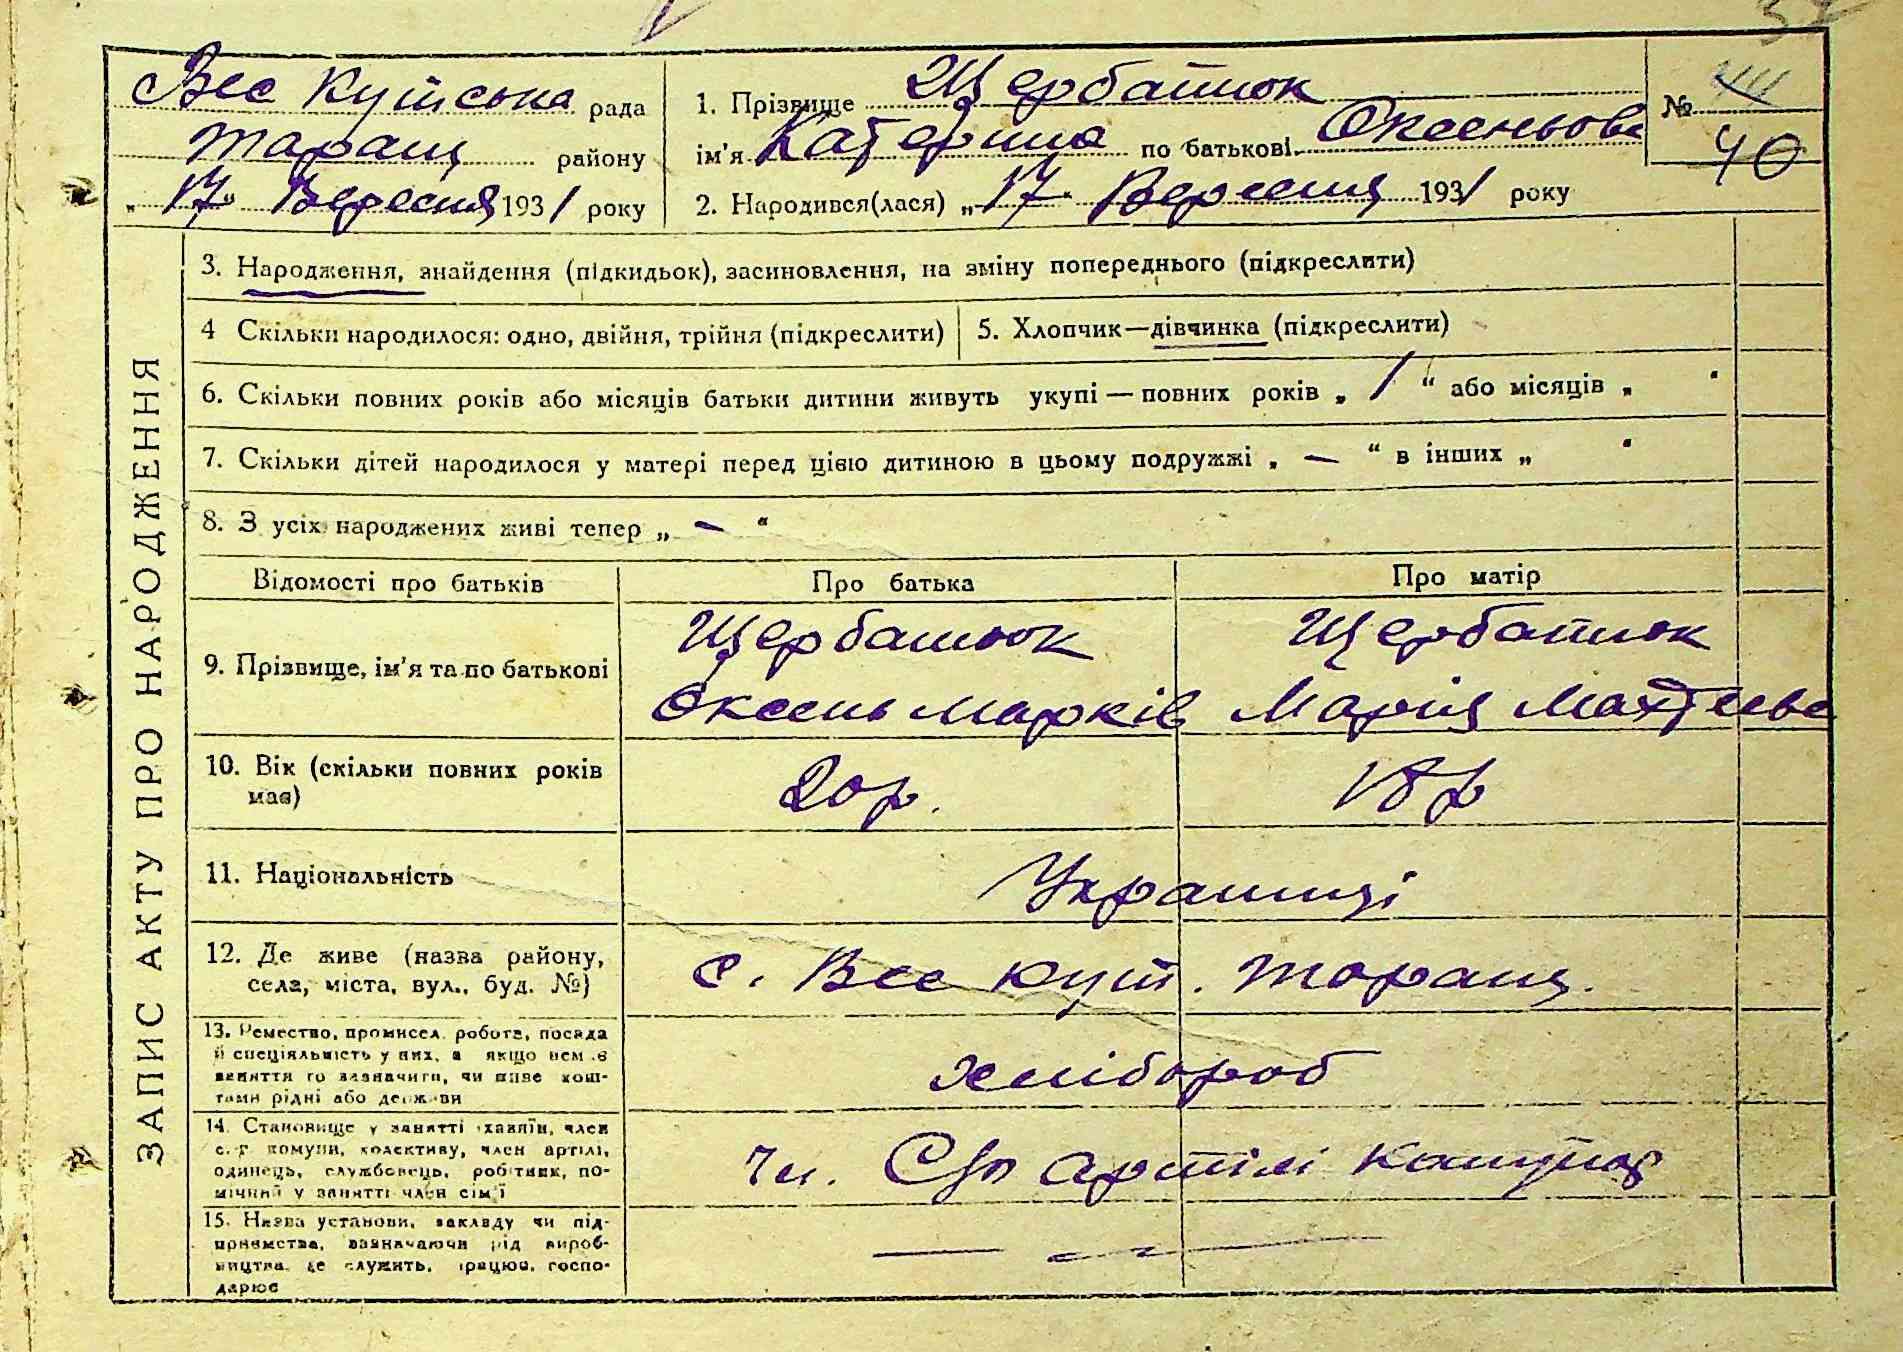 Вес Кутська рада
Таращ району
„ 17 “ Вересня 1931 року
1. Прізвище Щербатюк
ім'я Катерина по батькові Оксеньова
2. Народився(лася) „ 17 “ Вересня 1931 року
№
40
ЗАПИС АКТУ ПРО НАРОДЖЕННЯ
3. Народження, знайдення (підкидьок), засиновлення, на зміну попереднього (підкреслити)
4 Скільки народилося: одно, двійня, трійня (підкреслити)
5. Хлопчик—дівчинка (підкреслити)
6. Скільки повних років або місяців батьки дитини живуть укупі — повних років „ 1 “ або місяців „ “
7. Скільки дітей народилося у матері перед цією дитиною в цьому подружжі „ — “ в інших „ “
8. З усіх народжених живі тепер „ — “
Відомості про батьків
Про батька
Про матір
9. Прізвище, ім'я та по батькові
Щербатюк
Оксень Марків
Щербатюк
Марія
10. Вік (скільки повних років має)
20 р.
18 р
11. Національність
Українці
12. Де живе (назва району,
села, міста, вул., буд. №)
с. Вес Кут. Таращ.
13. Ремество, промисел, робота, посада
й спеціяльність у них, а якщо нема
заняття то зазначити, чи живе кош-
тами рідні або держави
хлібороб
14. Становище у занятті хазяїн, член
с.-г. комуни, колективу, член артілі,
одинець, службовець, робітник, по-
мічний у занятті член сім'ї
Чл. С/г артілі
15. Назва установи, закладу чи під-
приємства, зазначаючи рід вироб-
ництва, де служить, працює, госпо-
дарює